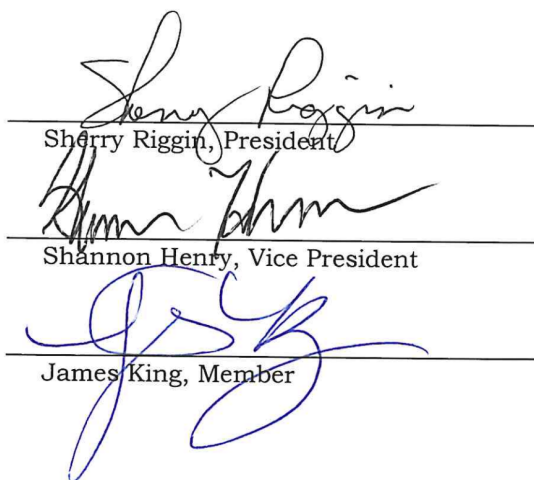 Sherry Riggin
Sherry Riggin, President
Shannon Henry, Vice President
James King, Member